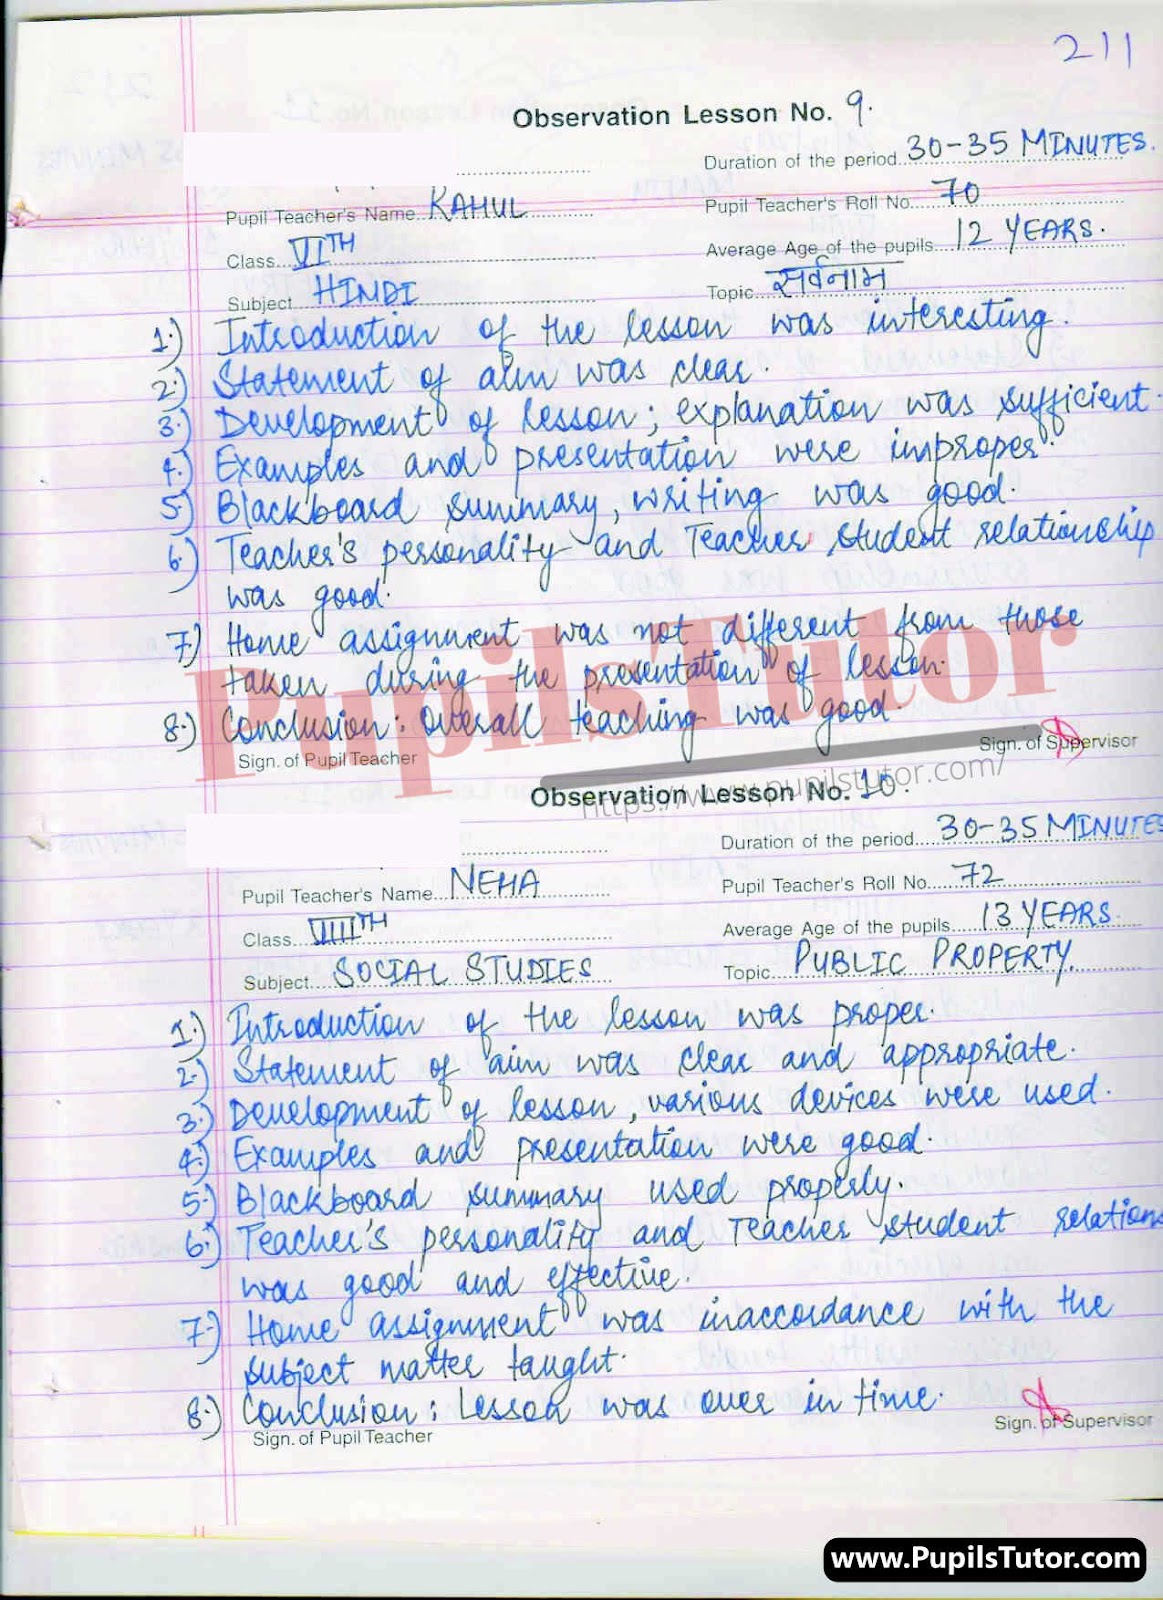 211
Observation Lesson No. 9.
Duration of the period 30-35 MINUTES.
Pupil Teacher's Name RAHUL
Pupil Teacher's Roll No. 70
Class VITH
Average Age of the pupils 12 YEARS.
Subject HINDI
Topic सर्वनाम
1.) Introduction of the lesson was interesting.
2.) Statement of aim was clear.
3.) Development of lesson; explanation was sufficient.
4.) Examples and presentation were improper.
5.) Blackboard summary, writing was good.
6.) Teacher's personality and Teacher student relationship
was good.
7.) Home assignment was not different from those
taken during the presentation of lesson.
8.) Conclusion: Overall teaching was good.
Sign. of Pupil Teacher
Sign. of Supervisor
PupilsTutor
https://www.pupilstutor.com/
Observation Lesson No. 10.
Duration of the period 30-35 MINUTES
Pupil Teacher's Name NEHA
Pupil Teacher's Roll No. 72
Class VIIITH
Average Age of the pupils 13 YEARS.
Subject SOCIAL STUDIES
Topic PUBLIC PROPERTY.
1.) Introduction of the lesson was proper.
2.) Statement of aim was clear and appropriate.
3.) Development of lesson, various devices were used.
4.) Examples and presentation were good.
5.) Blackboard summary used properly.
6.) Teacher's personality and Teacher student relations
was good and effective.
7.) Home assignment was inaccordance with the
subject matter taught.
8.) Conclusion: Lesson was over in time.
Sign. of Pupil Teacher
Sign. of Supervisor
www.PupilsTutor.com